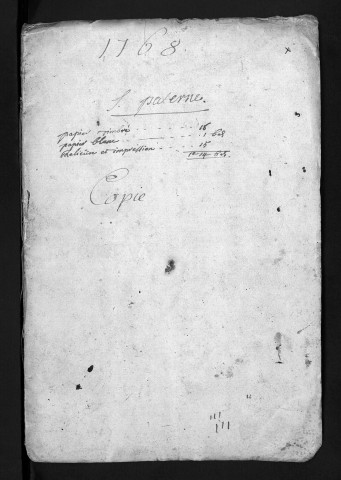 1768.
S. paterne.
papier timbré - - - - 16
papier blanc - - - - 1 6d
Relieure et impression - - 15
Copie